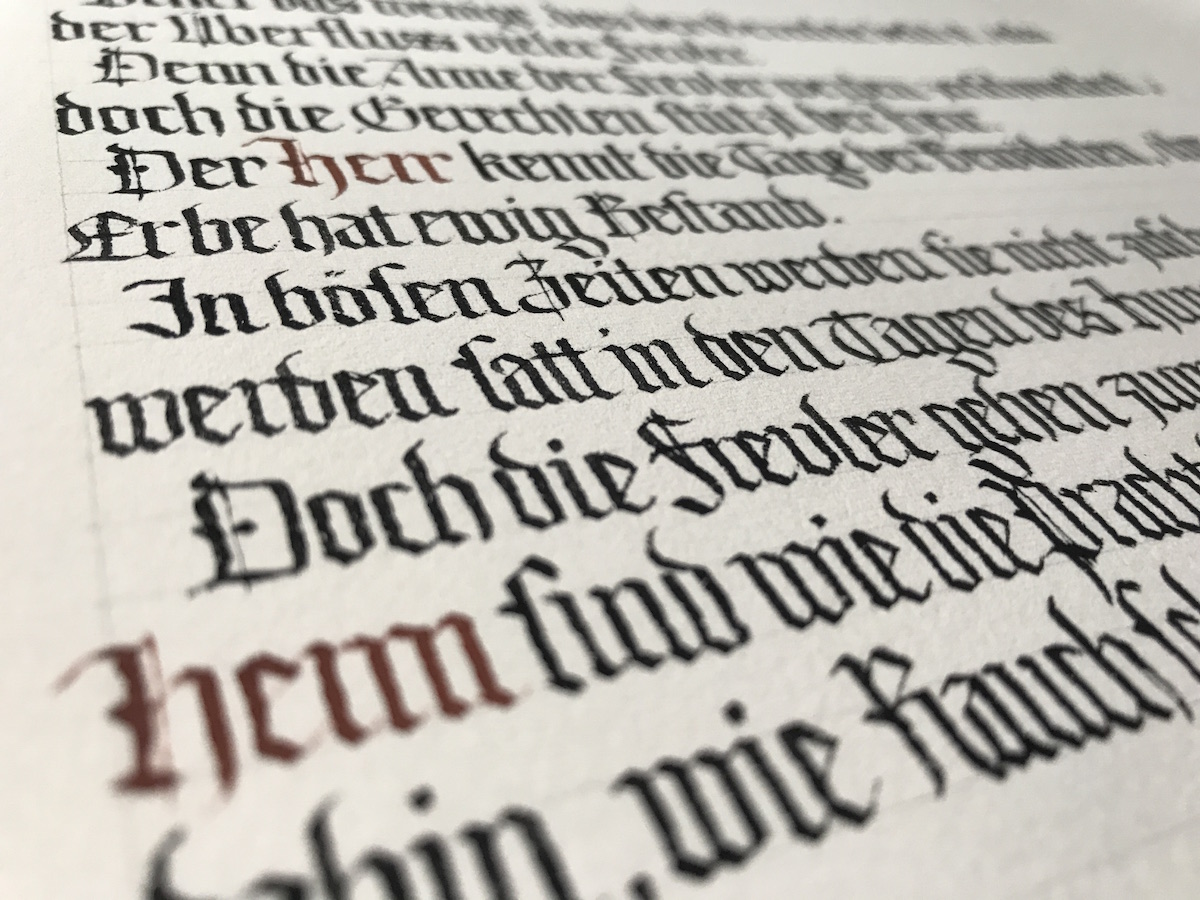 der Überfluss vieler Frevler.
Denn die Arme der Frevler werden zerschmettert,
doch die Gerechten stützt der Herr.
Der Herr kennt die Tage der Bewährten,
Erbe hat ewig Bestand.
In bösen Zeiten werden sie nicht
werden satt in den Tagen des
Doch die Frevler gehen
Herrn sind wie die Pracht
dahin, wie Rauch